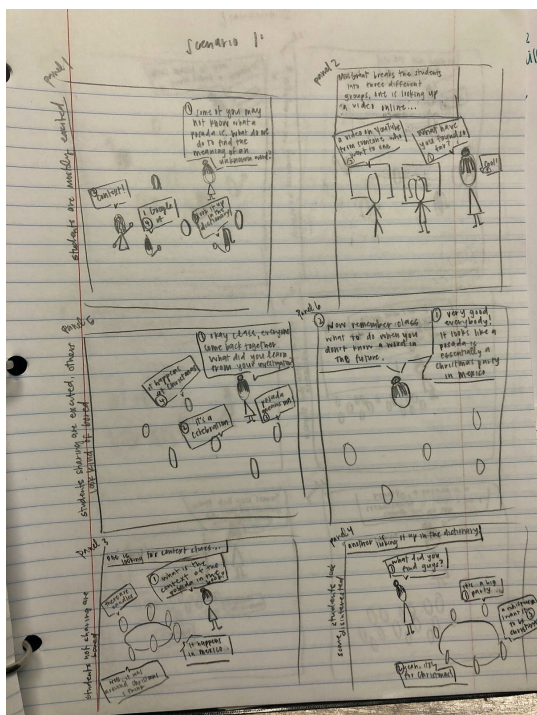 Scenario 1:
Panel 1
students are mostly excited
① Some of you may
not know what a
posada is. What do we
do to find the
meaning of an
unknown word?
② Context!
③ Google
it
look it up
in the
dictionary!
panel 2
breaks the students
into three different
groups, one is looking up
a video online...
a video on YouTube
from someone who
went to one
what have
you found so
far?
cool!
Panel 5
students sharing are excited, others
look kind of bored
① okay class, everyone
come back together
what did you learn
from your
it happens
at christmas
④
② it's a
celebration
posada
Panel 6
② Now remember class
what to do when you
don't know a word in
the future.
① very good
everybody!
It looks like a
posada is
essentially a
christmas party
in mexico
Panel 3
students not sharing are
bored
one is looking the context clues...
① what is the
context of the
posada in the
it happens
in mexico
around christmas
I think
panel 4
some students look
disinterested
another is looking it up in the dictionary!
① what did you
find guys?
it's a big
party
yeah, it's
for christmas!